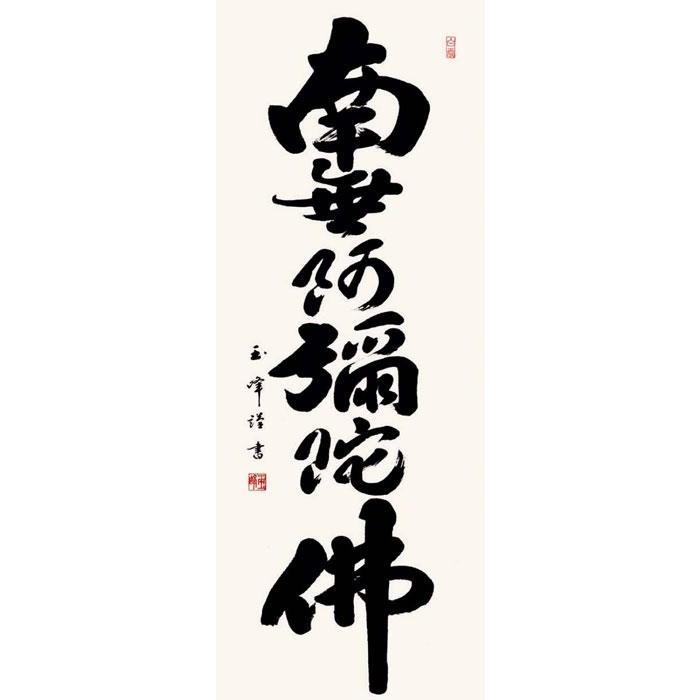 南無阿彌陀佛
玉峰謹書